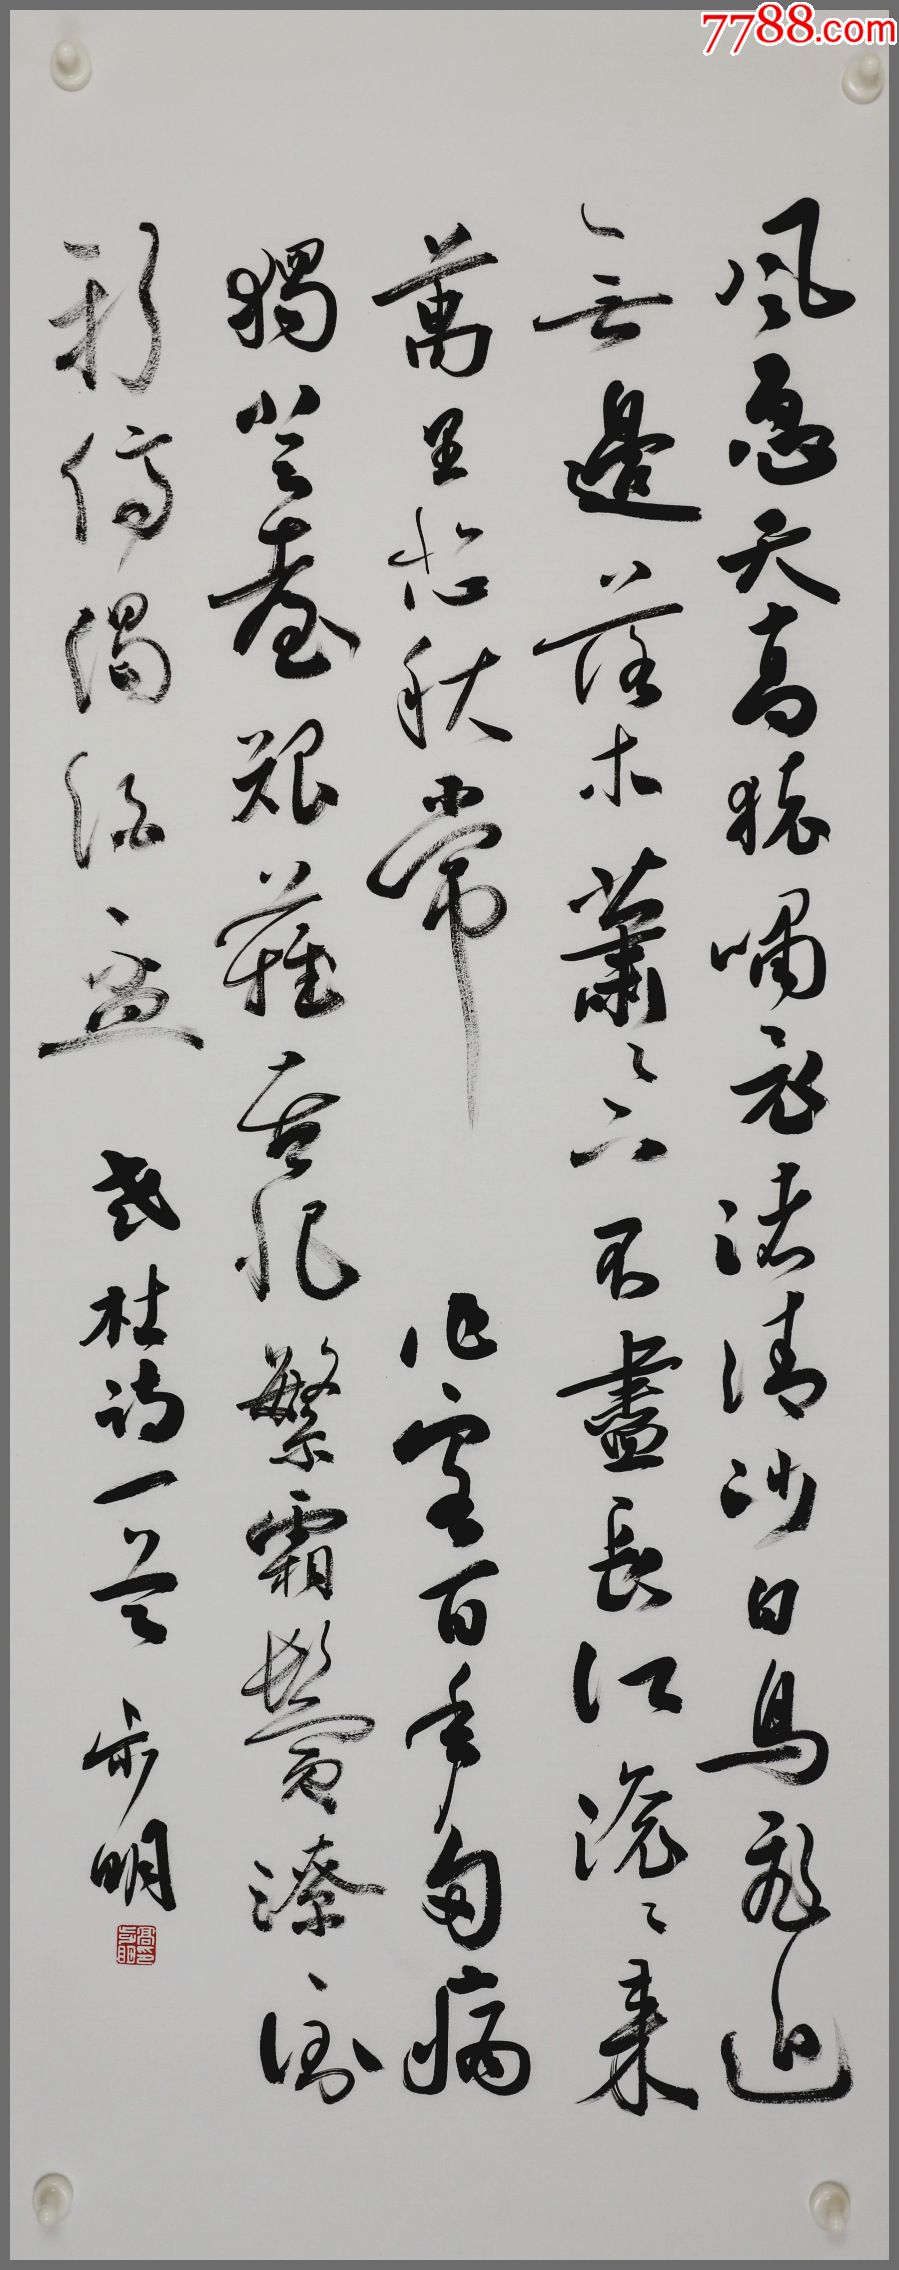 7788.com
風急天高猿嘯哀渚清沙白鳥飛迴
無邊落木蕭〻下不盡長江滾〻來
萬里悲秋常作客百年多病
獨登臺艱難苦恨繁霜鬢潦倒
新停濁酒盃 杜詩一首 步明